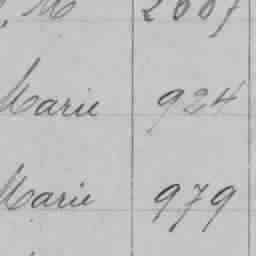 Marie 924
Marie 979